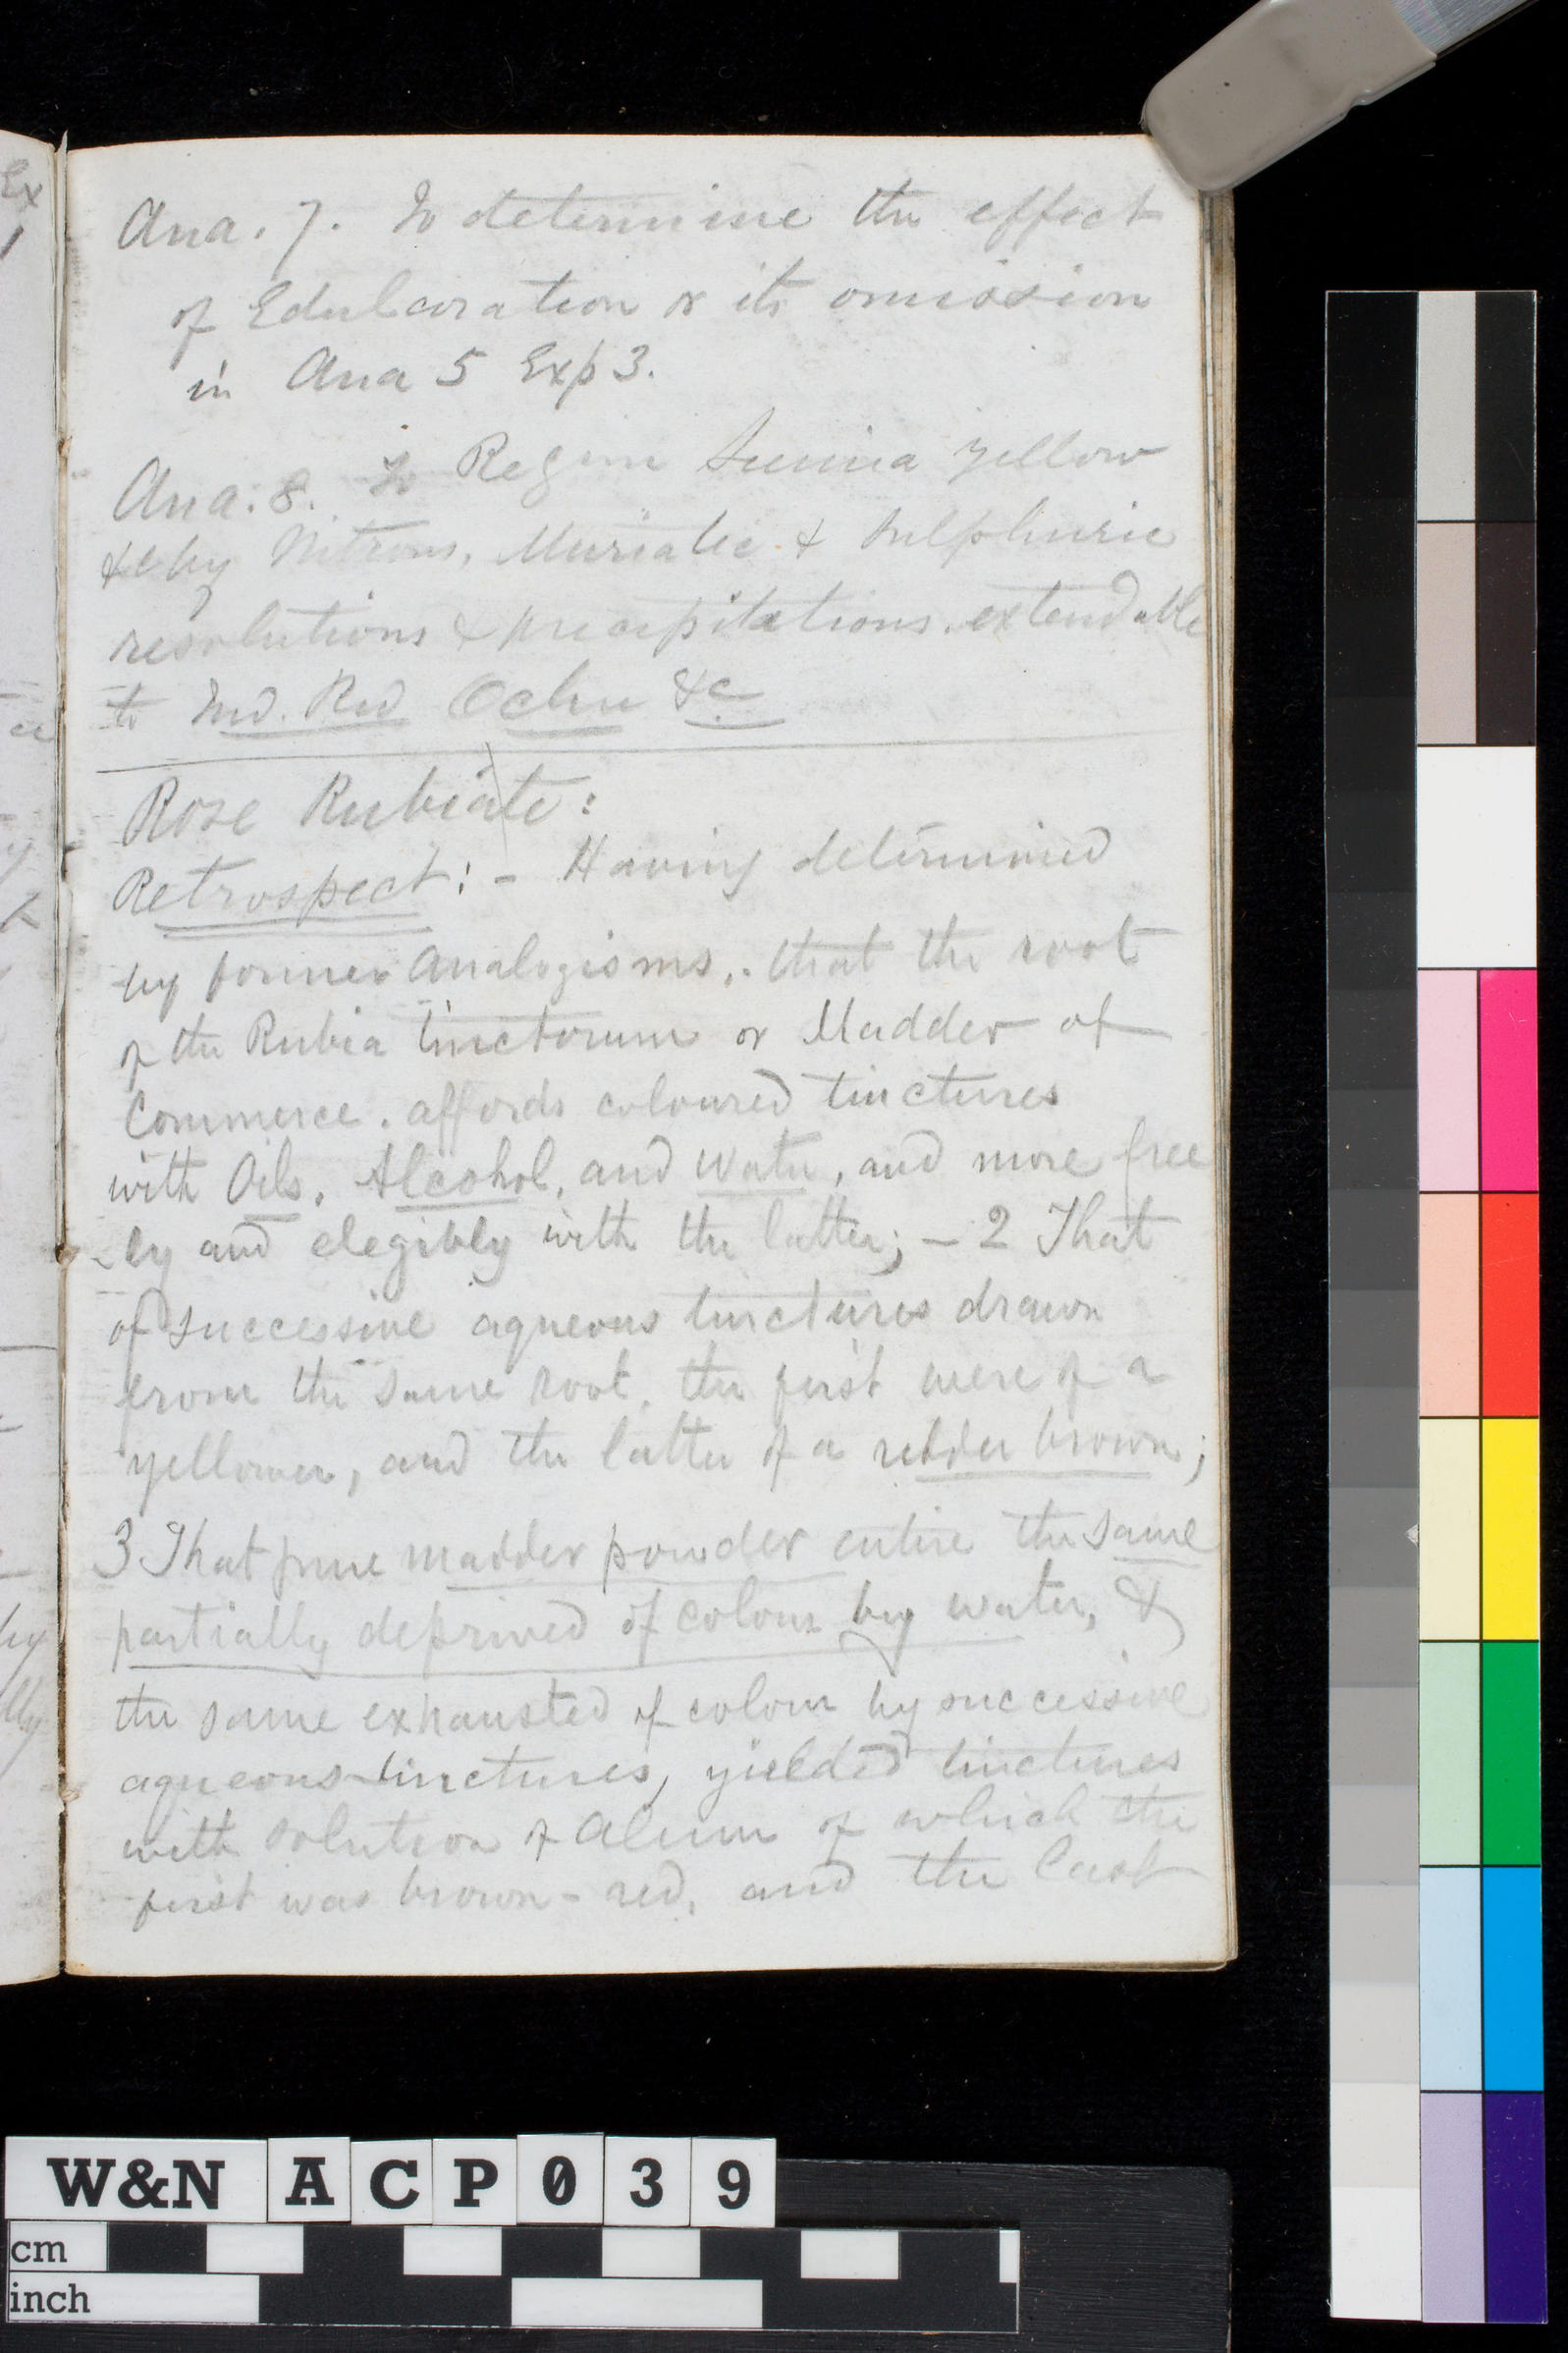 Ana. 7. To determine the effect
of Edulcoration or its omission
in Ana 5 Exp 3.
Ana. 8. To Regim Sienna yellow
&c by Nitrous, Muriatic & Sulphuric
resolutions & precipitations. extendable
to Ind. Red Ochre &c
Rose Rubiate:
Retrospect: - Having determined
by former Analogisms,. that the root
of the Rubia tinctorum or Madder of
Commerce. affords coloured tinctures
with Oils. Alcohol, and Water, and more free
-ly and elegibly with the latter; - 2 That
of successive aqueous tinctures drawn
from the same root, the first were of a
yellower, and the latter of a redder brown;
3 That pure madder powder entire the same
partially deprived of colour by water, &
the same exhausted of colour by successive
aqueous tinctures, yielded tinctures
with solution of Alum of which the
first was brown-red, and the last
W&N ACP039
cm
inch